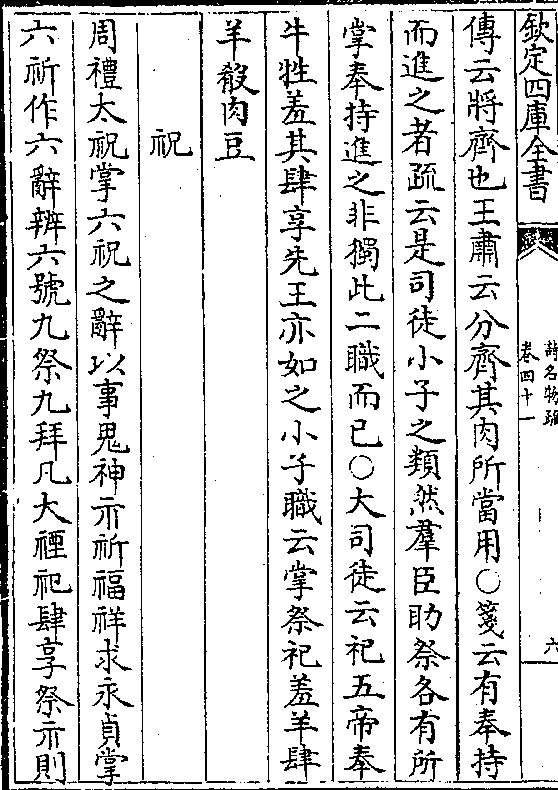 欽定四庫全書
詩名物疏
卷四十一
六
傳云將齊也王肅云分齊其肉所當用○箋云有奉持
而進之者疏云是司徒小子之類然羣臣助祭各有所
掌奉持進之非獨此二職而已○大司徒云祀五帝奉
牛牲羞其肆享先王亦如之小子職云掌祭祀羞羊肆
羊殽肉豆
祝
周禮太祝掌六祝之辭以事鬼神示祈福祥求永貞掌
六祈作六辭辨六號九祭九拜凡大禋祀肆享祭示則